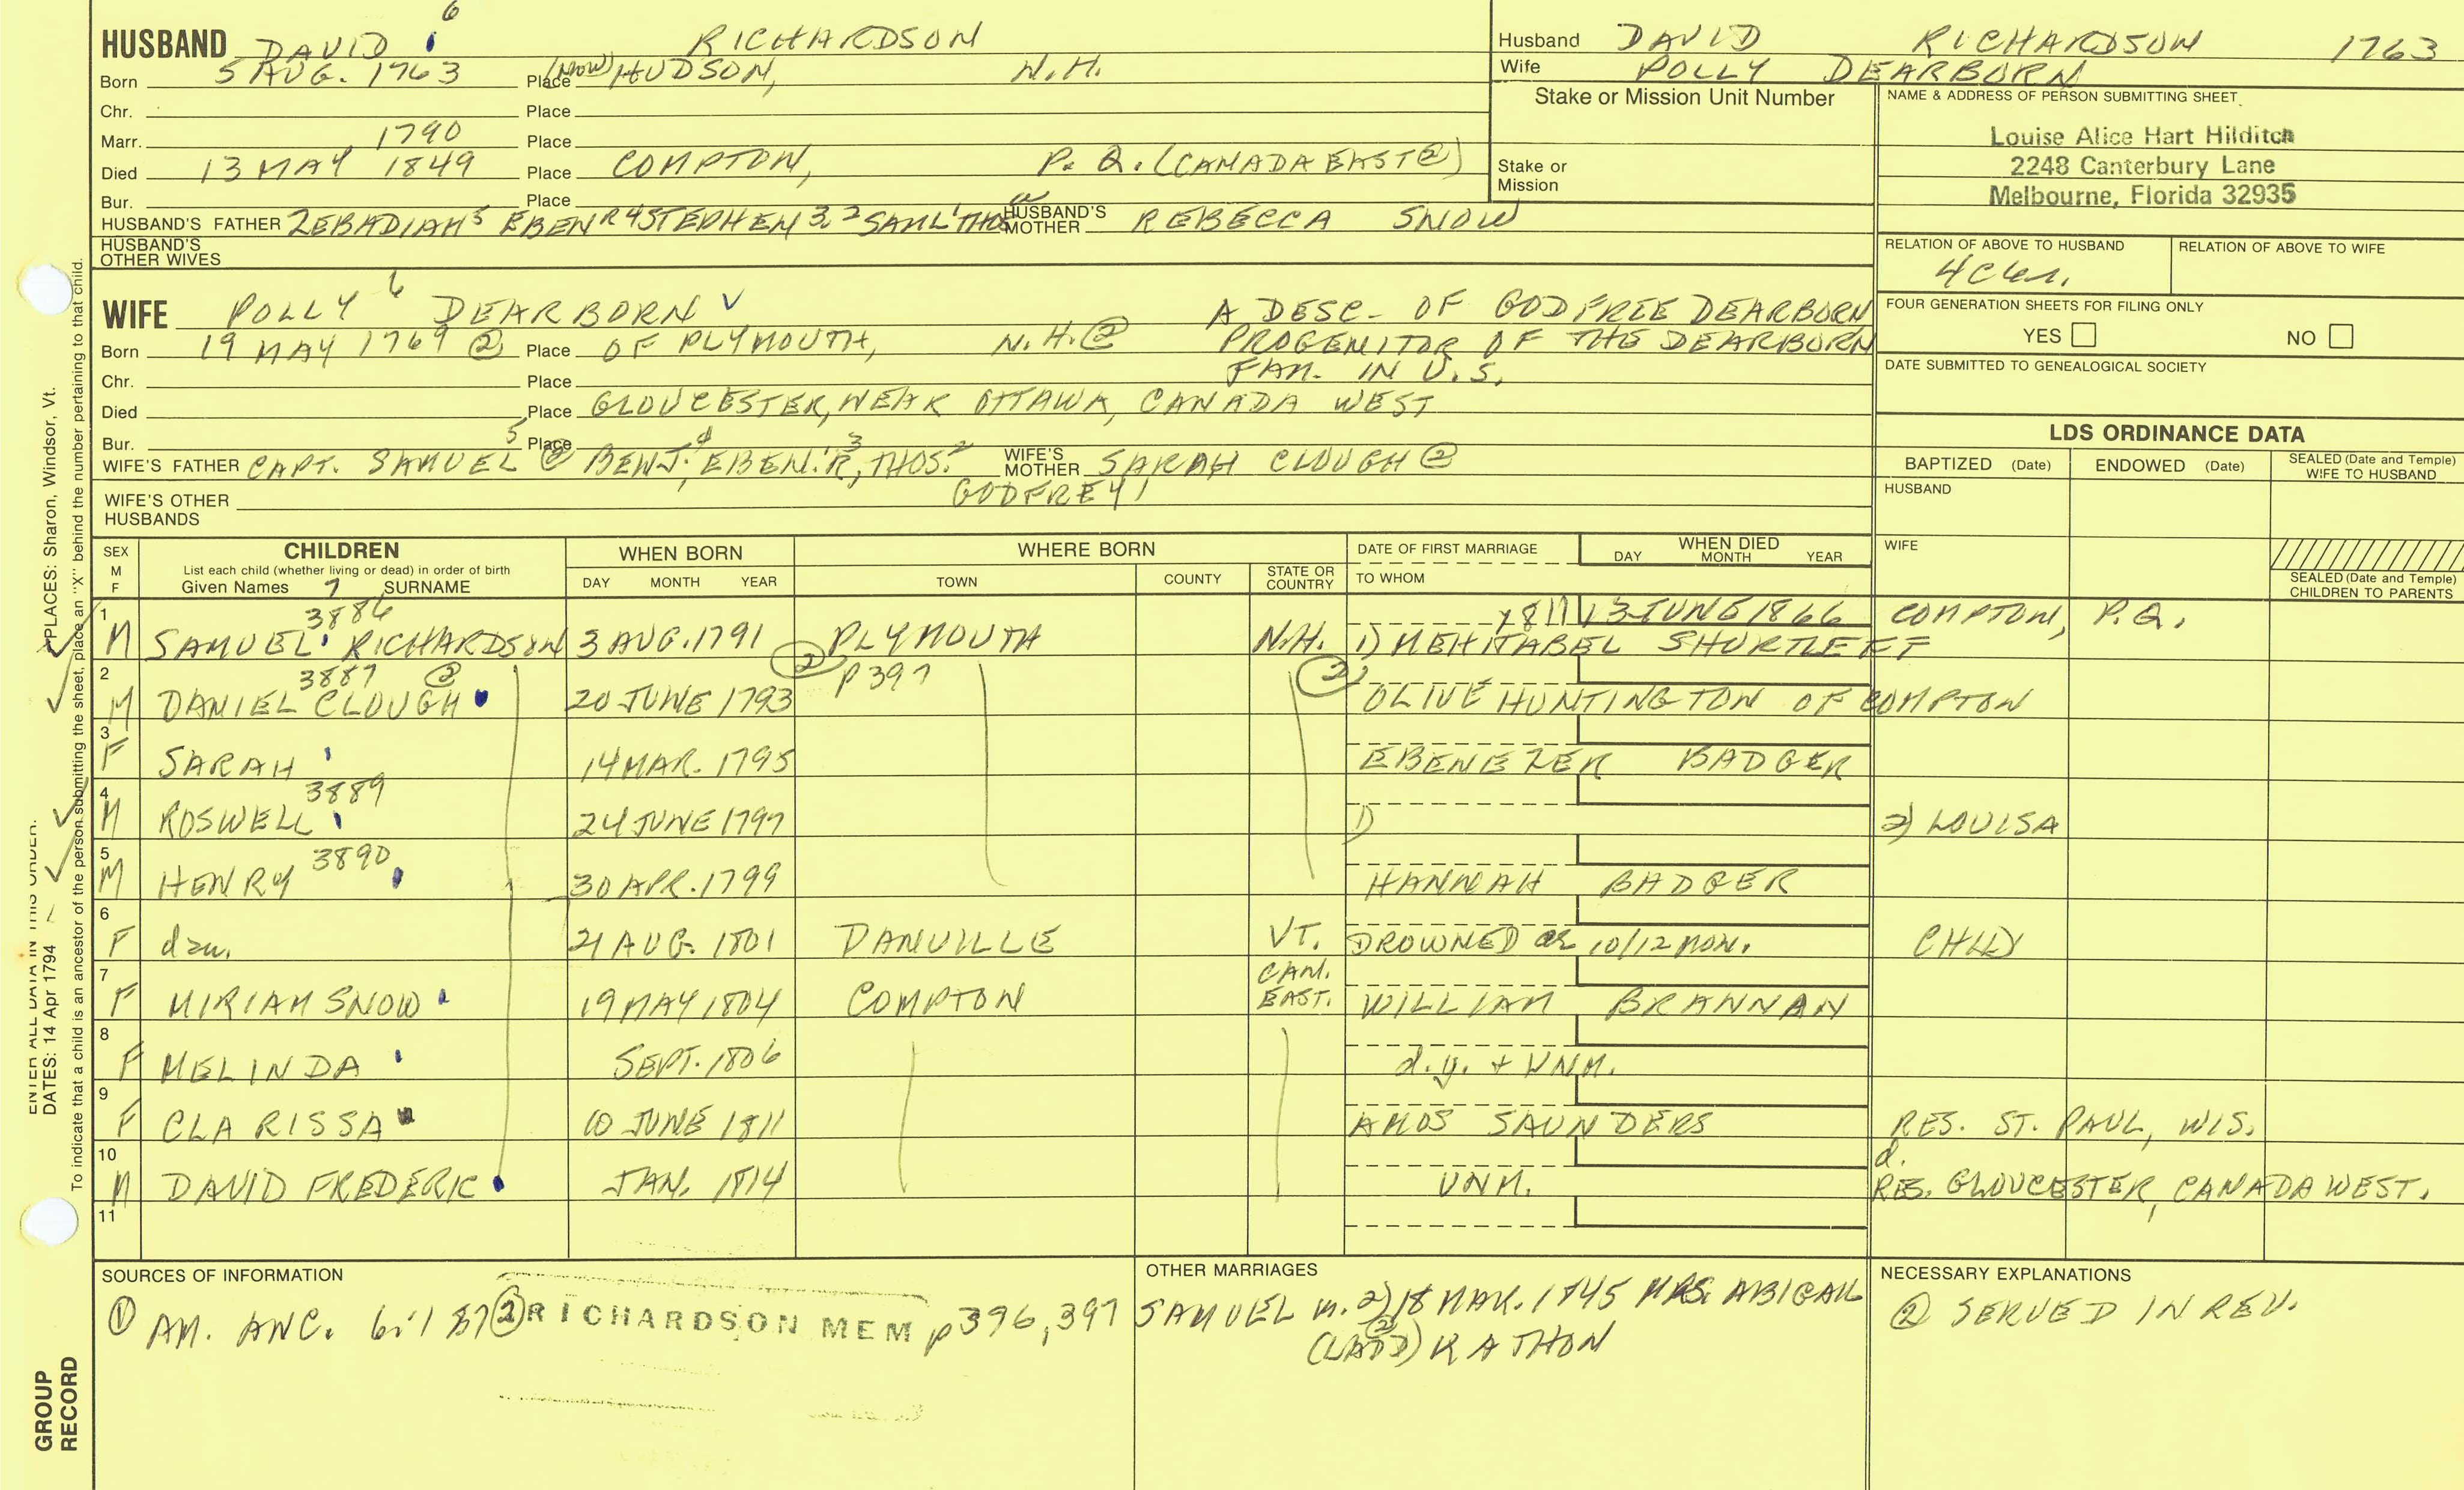 HUSBAND DAVID 6 RICHARDSON
Born 5 AUG. 1763 Place (NOW) HUDSON, N.H.
Chr. Place
Marr. 1790 Place
Died 13 MAY 1849 Place COMPTON, P.Q. (CANADA EAST②)
Bur. Place
HUSBAND'S FATHER ZEBADIAH5 EBEN R4 STEPHEN 3,2 SAML' THOS HUSBAND'S MOTHER REBECCA SNOW
HUSBAND'S OTHER WIVES
WIFE POLLY 6 DEARBORN A DESC. OF GODFREE DEARBORN
Born 19 MAY 1769 ② Place OF PLYMOUTH, N.H.② PROGENITOR OF THE DEARBORN
FAM. IN U.S.
Chr. Place
Died Place GLOUCESTER, NEAR OTTAWA, CANADA WEST
Bur. Place
WIFE'S FATHER CAPT. SAMUEL 5 ② BENJ.4, EBEN.R3, THOS.2 WIFE'S MOTHER SARAH CLOUGH ②
GODFREY1
WIFE'S OTHER HUSBANDS
Husband DAVID RICHARDSON 1763
Wife POLLY DEARBORN
Stake or Mission Unit Number
Stake or Mission
NAME & ADDRESS OF PERSON SUBMITTING SHEET
Louise Alice Hart Hilditch
2248 Canterbury Lane
Melbourne, Florida 32935
RELATION OF ABOVE TO HUSBAND RELATION OF ABOVE TO WIFE
FOUR GENERATION SHEETS FOR FILING ONLY
YES NO
DATE SUBMITTED TO GENEALOGICAL SOCIETY
LDS ORDINANCE DATA
BAPTIZED (Date) ENDOWED (Date) SEALED (Date and Temple) WIFE TO HUSBAND
HUSBAND
WIFE
SEALED (Date and Temple) CHILDREN TO PARENTS
SEX M F
CHILDREN
List each child (whether living or dead) in order of birth
Given Names 7 SURNAME
WHEN BORN
DAY MONTH YEAR
WHERE BORN
TOWN COUNTY STATE OR COUNTRY
DATE OF FIRST MARRIAGE
TO WHOM
WHEN DIED
DAY MONTH YEAR
1 3886 1811 13 JUNE 1866 COMPTON, P.Q.
M SAMUEL RICHARDSON 3 AUG. 1791 PLYMOUTH N.H. 1) MEHITABEL SHURTLEFF
2 3887 ② ② P397 ②
M DANIEL CLOUGH 20 JUNE 1793 OLIVE HUNTINGTON OF COMPTON
3
F SARAH 14 MAR. 1795 EBENEZER BADGER
4 3889
M ROSWELL 24 JUNE 1797 1) 2) LOUISA
5 3890
M HENRY 30 APR. 1799 HANNAH BADGER
6
F dau. 21 AUG. 1801 DANVILLE VT. DROWNED ae 10/12 MON. CHILD
7
F MIRIAM SNOW 19 MAY 1804 COMPTON CAN. EAST. WILLIAM BRANNAN
8
F MELINDA SEPT. 1806 d.y. + UNM.
9
F CLARISSA 10 JUNE 1811 AMOS SAUNDERS RES. ST. PAUL, WIS.
10 d.
M DAVID FREDERIC JAN. 1814 UNM. RES. GLOUCESTER, CANADA WEST.
11
SOURCES OF INFORMATION
① AM. ANC. 6:187 ② RICHARDSON MEM p396,397
OTHER MARRIAGES
SAMUEL m. 2) 18 MAR. 1845 MRS. ABIGAIL
(LADD) ② KATHON
NECESSARY EXPLANATIONS
② SERVED IN REV.
PLACES: Sharon, Windsor, Vt.
DATES: 14 Apr 1794
ENTER ALL DATA IN THIS ORDER.
To indicate that a child is an ancestor of the person submitting the sheet, place an "X" behind the number pertaining to that child.
GROUP RECORD